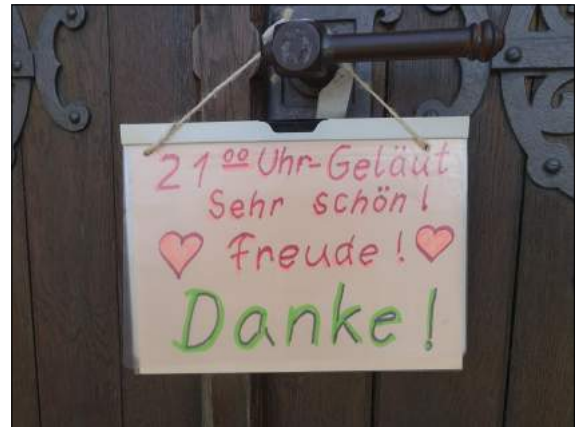 21⁰⁰ Uhr-Geläut
Sehr schön!
Freude!
Danke!